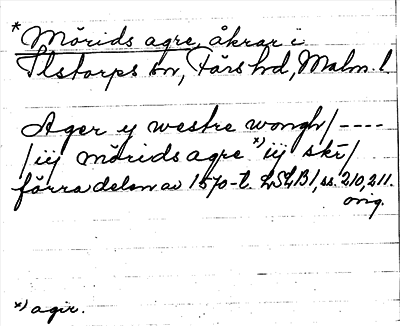 * Mörids agre, åkrar i
Ilstorps sn, Färs hd, Malm. l.
Ager y westre wongh/----
/iij mörids agre x) iij skr/
förra delen av 1570-t. LSLB1, ss. 210, 211.
orig.
x) agir.